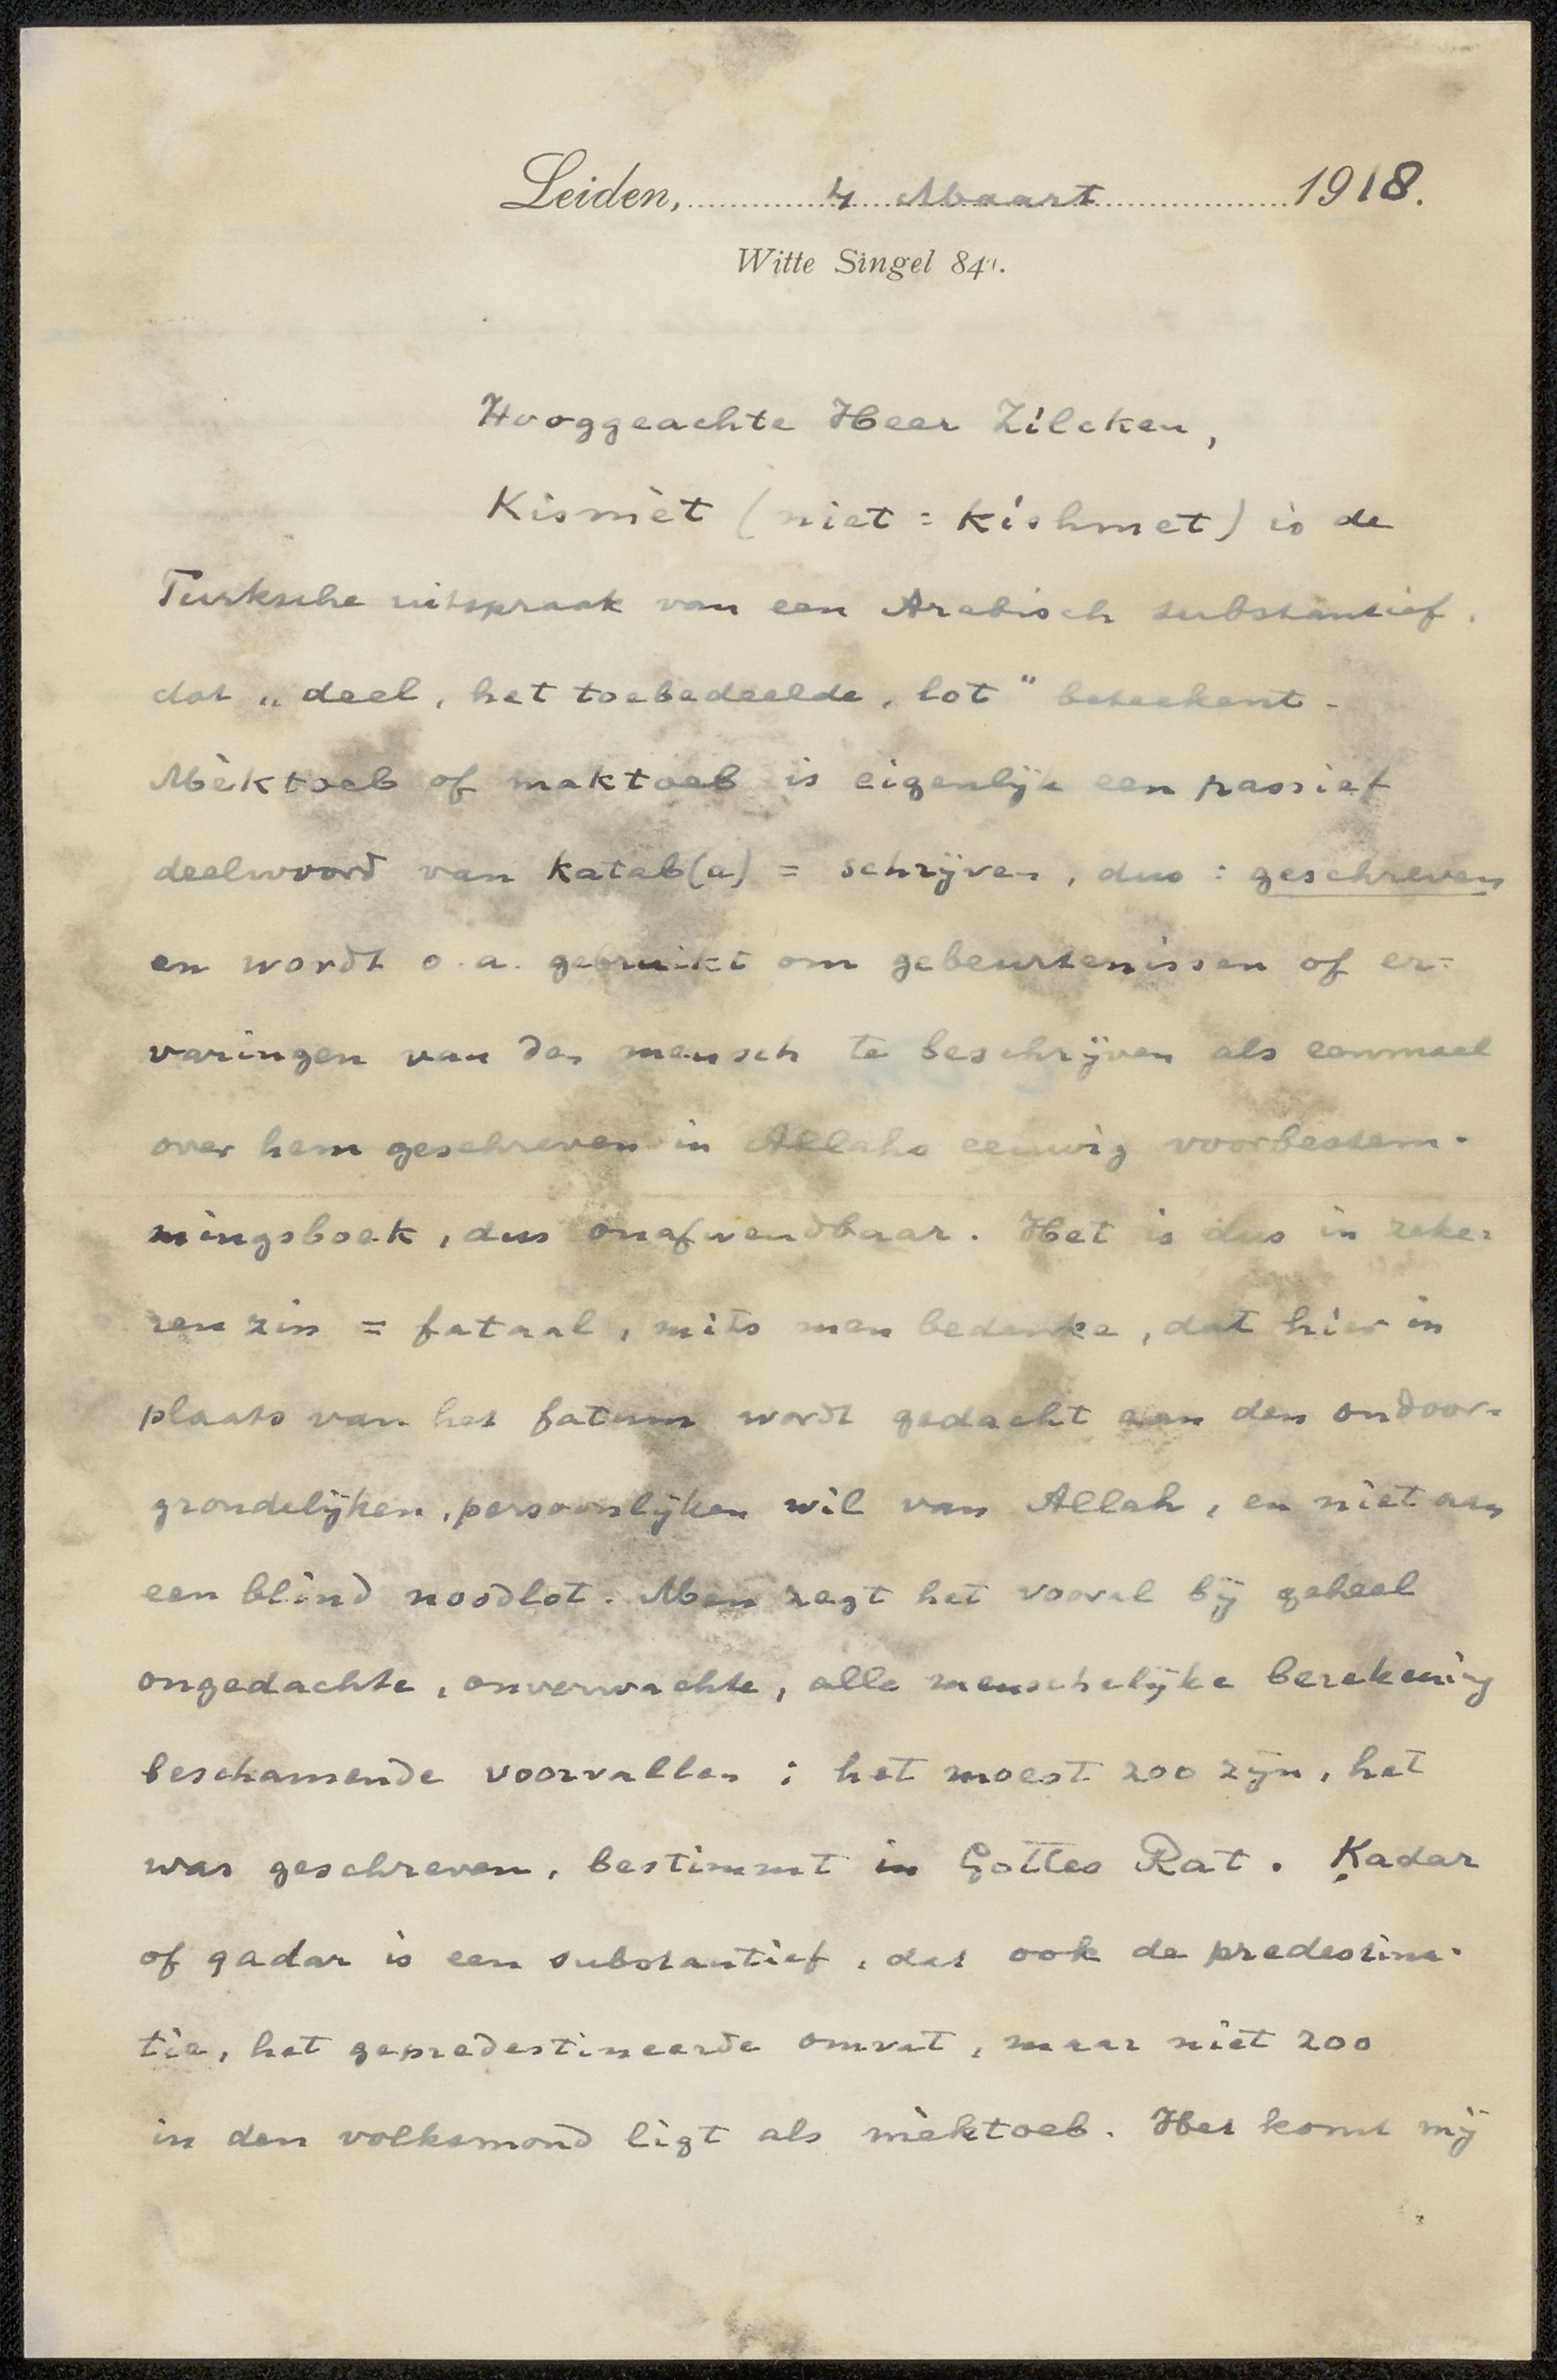 Leiden, 4 Maart 1918.
Witte Singel 84a.
Hooggeachte Heer Zilcken,
Kismèt (niet = kishmet) is de
Turksche uitspraak van een Arabisch substantief,
dat „deel, het toebedeelde, lot" beteekent.
Mèktoeb of maktoeb is eigenlijk een passief
deelwoord van katab(a) = schrijven, dus : geschreven
en wordt o.a. gebruikt om gebeurtenissen of er=
varingen van den mensch te beschrijven als eenmaal
over hem geschreven in Allahs eeuwig voorbestem-
mingsboek, dus onafwendbaar. Het is dus in zeke=
ren zin = fataal, mits men bedenke, dat hier in
plaats van het fatum wordt gedacht aan den ondoor-
grondelijken, persoonlijken wil van Allah, en niet aan
een blind noodlot. Men zegt het vooral bij geheel
ongedachte, onverwachte, alle menschelijke berekening
beschamende voorvallen : het moest zoo zijn, het
was geschreven, bestimmt in Gottes Rat. Ḳadar
of qadar is een substantief, dat ook de predestina-
tie, het gepredestineerde omvat, maar niet zoo
in den volksmond ligt als mèktoeb. Het komt mij